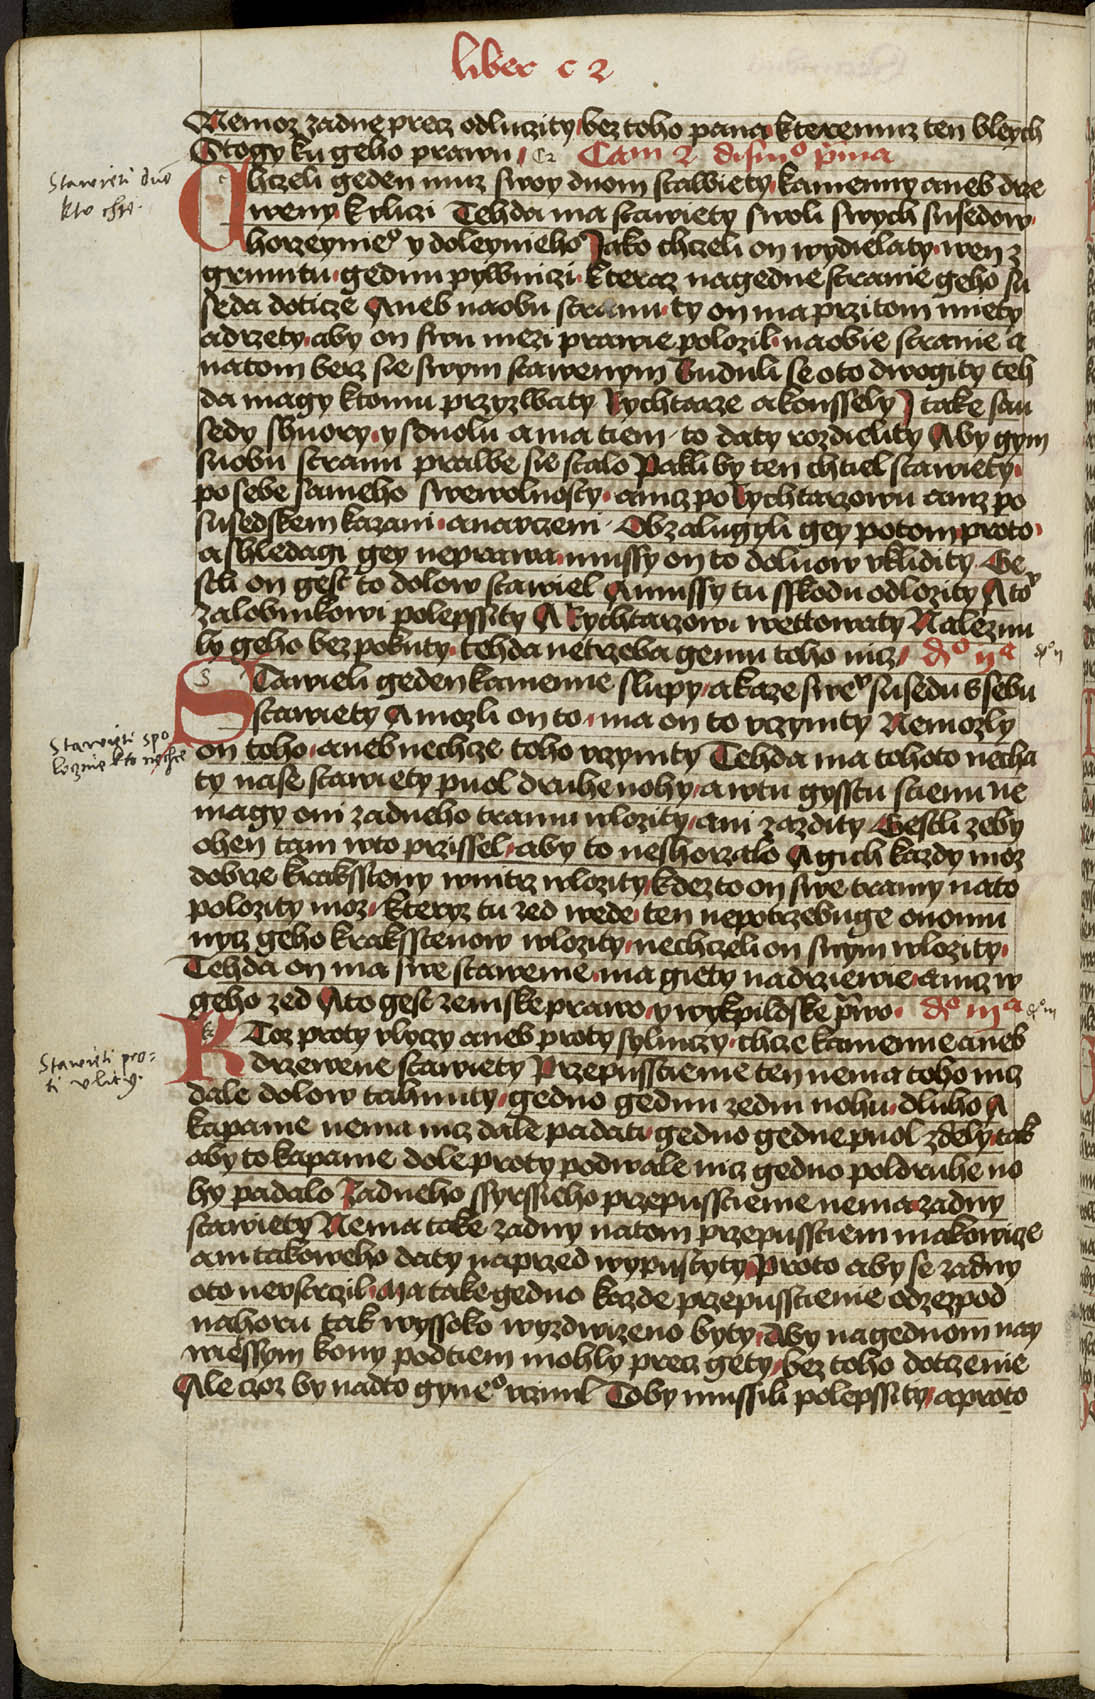 liber c 2
Nemoz zadne precz odluczity bez toho pana kteremuz ten bleych
Stogy ku geho prawu Cam 2 disti͞o p͞ma
Stawieti duo
kto chze.
Chczeli geden muz swoy duom stawiety kamenny aneb drze
weny k vliczi Tehda ma stawiety swoli swych susedow
horzeynie͛o y doleynieho Jako chczeli on wydielaty wen z
gruntu gednu pywniczi kteraz nagedne stranie geho su
seda doticze Aneb naobu stranu ty on ma przitom miety
a drzety aby on swu mezi prawie polozil naobie stranie a
natom berz sie swym stawenym Buduli se oto dwogity teh
da magy ktomu przyzwaty Rychtarze a konssely J take sau
sedy shuory y sduolu a ma tiem to daty rozdielity Aby gym
suobu stranu prawe sie stalo Pakli by ten chtiel stawiety
po sebe sameho swewolnosty aniz po Rychtarzowu aniz po
susedskem kazani a nauczeni Obzalugyli gey potom proto
a shledagi gey neprawa mussy on to doluow vklidity Ge
stli on gest to dolow stawiel A mussy tu sskodu odlozity A to͛
zalobnikowi polepssity A Rychtarzowi wettowaty Naleznu
ly geho bez pokuty tehda netrzeba gemu toho nicz d͛o ij͛a
STawieli geden kamenne slupy a kaze swe͛ susedu s sebu
stawiety A mozli on to ma on to vczynity Nemozly
Stawieti spo
lecznie kto nechce
on toho aneb nechcze toho vczynity Tehda ma tohoto necha
ty nase stawiety puol druhe nohy a wtu gysstu stienu ne
magy oni zadneho tramu wlozity ani zazdity Gestli zeby
ohen tam wto przissel aby to neshorzalo A gich kazdy moz
dobrze krakssteny wnitrz wlozity kdezto on swe tramy nato
polozity moz kteryz tu zed wede ten nepotrzebuge onomu
nycz geho kraksstenow wlozity nechczeli on swym wlozity
Tehda on ma swe stawenie ma giety na drziewie aniz w
geho zed A to gest zemske prawo y wykpildske p͛wo d͛o iij͛a
Stawieti pro=
ti vlicy.
KToz proty vlyczy aneb proty sylniczy chcze kamenne aneb
drzewene stawiety Przepusstienie ten nema toho nicz
dale dolow tahnuty gedno gednu zedni nohu dluho A
kapanie nema nicz dale padati gedno gedne puol zdely tak
aby to kapanie dole proty podwale nicz gedno poldruhe no
hy padalo Zadneho ssyrssieho przepusstienie nema zadny
stawiety Nema take zadny natom przepusstieni makowicze
ani takoweho daty naprzed wypustyty Proto aby se zadny
oto nevstrczil Ma take gedno kazde przepusstienie odzezpod
nahoru tak wyssoko wyzdwizeno byty Aby nagednom nay
wiessym kony podtiem mohly precz gety bez toho dotczenie
Ale czoz by nadto gyne͛o vczinil Toby mussili polepssity a proto